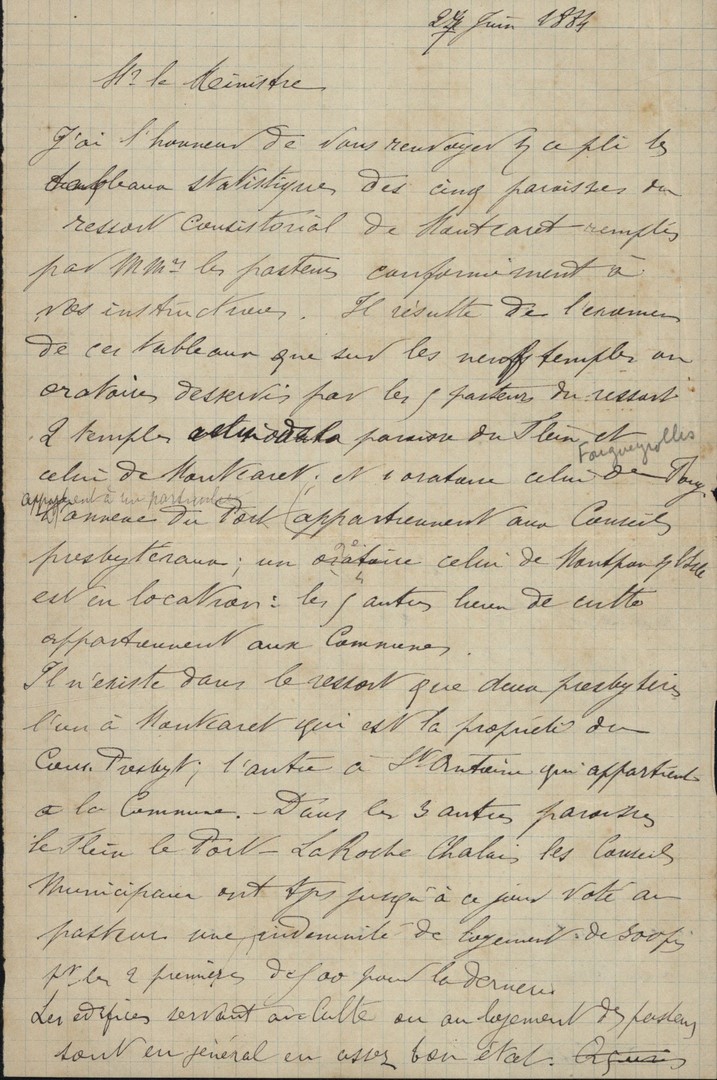 27 Juin 1884
Mr le Ministre
J'ai l'honneur de vous renvoyer ce pli les
tableaux statistiques des cinq paroisses du
ressort consistorial de Montcaret remplis
par MMrs les pasteurs conformément à
vos instructions. Il résulte de l'examen
de ces tableaux que sur les neuf temples ou
oratoires desservis par les 5 pasteurs du ressort
2 temples celui de la paroisse du Flein et
Fougueyrolles
celui de Montcaret; et 1 oratoire celui de Foug
appartient à un particulier
annexe du Port (appartiennent aux Conseils
presbytéraux; un 2e oratoire celui de Montpon s/ l'Isle
est en location: les 5 4 autres lieux de culte
appartiennent aux Communes.
Il n'existe dans le ressort que deux presbytères
l'un à Montcaret qui est la propriété du
Cons. Presbyt; l'autre à St Antoine qui appartient
à la Commune. - Dans les 3 autres paroisses
le Flein le Port - LaRoche Chalais les Conseils
Municipaux ont tjrs jusqu'à ce jour voté au
pasteur une indemnité de logement de 300 f
pr les 2 premières de 500 pour la dernière
Les édifices servant au culte ou au logement des pasteurs
sont en général en assez bon état.